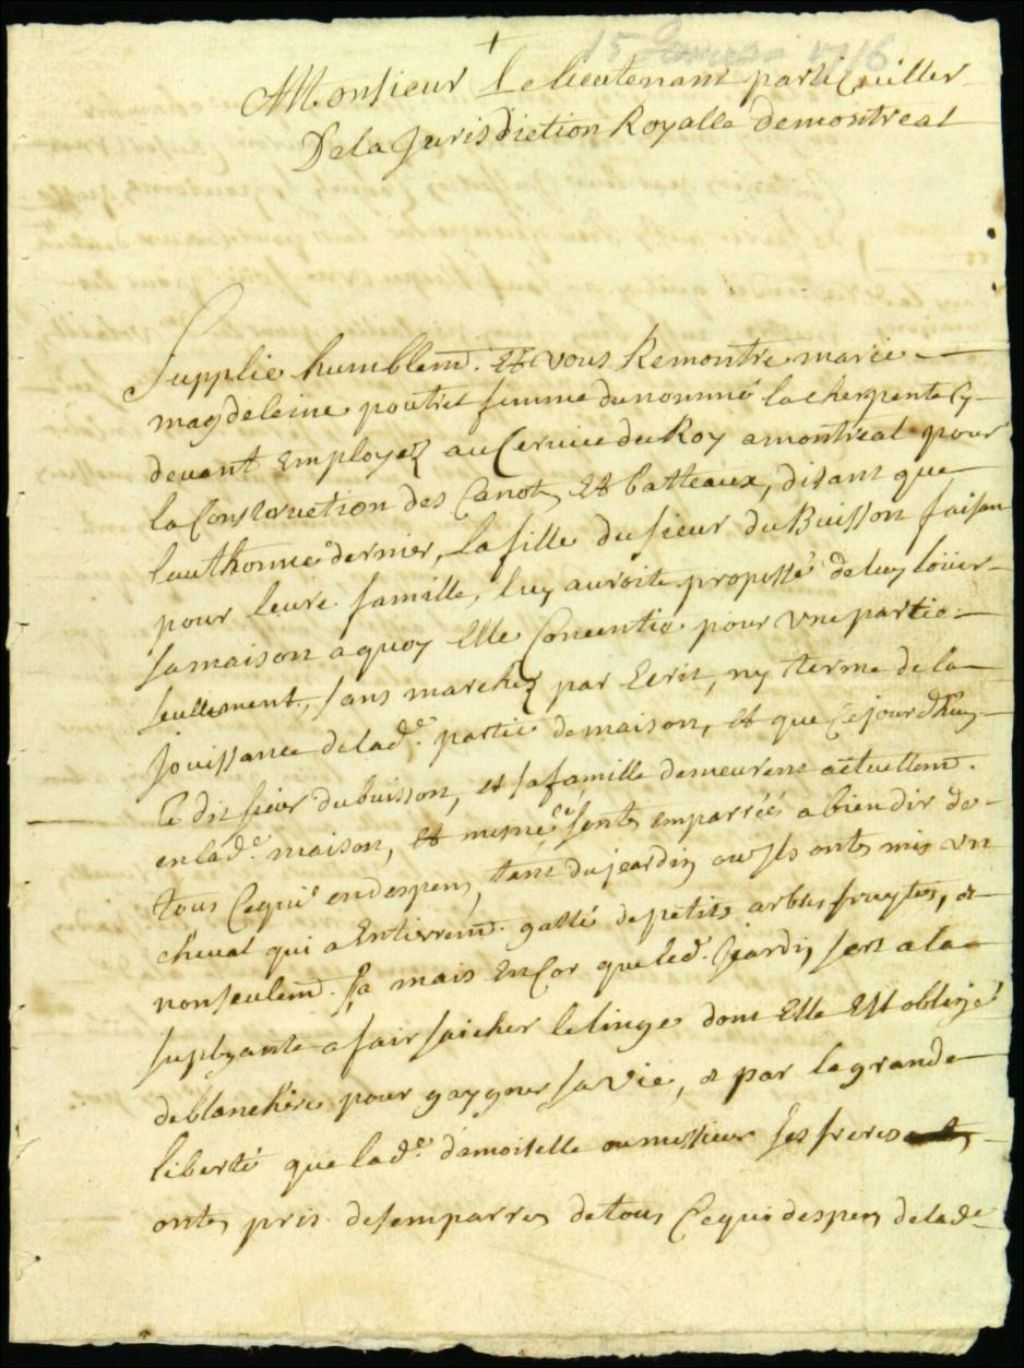 15 Janvier 1716
A Monsieur Le lieutenant particuiller
De la Jurisdiction Royalle de montreal
Supplie humblemt. Et vous Remontre marie
magdeleine poutret femme du nommé la cherpente Cy
devant Employez au Cervice du Roy a montreal pour
la Construction des Canots Et batteaux, disant que
lauthonne dernier, La fille du sieur du Buisson faisan
pour leure famille, luy auroite proposté de luy loüer
sa maison a quoy Elle Concentie pour vne partie
seullement, sans marchez par Ecrit, ny terme de la
Jouissance de lade. partie de maison, et que Cejourdhuy
Le dit sieur du buisson, et sa famille demeurent actuellemt.
en lade. maison, et mesme se sonts emparréé a bien dir de
tous Cequi en despens, tant du jeardin ou ils onts mis un
cheval qui a Entirremt. gatté de petits arbres fruytiers, et
non seulemt. sa mais Encor que led. Jeardin sert a la
suplyante a fair saicher le linge dont Elle Est obligé
de blanchire pour gaygner sa vie, et par la grande
liberté que lade. damoiselle ou messieurs ses freres
onts pris de semparrer de tous Cequi despens de lade